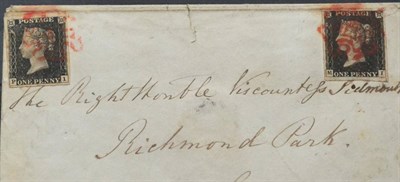 POSTAGE
ONE PENNY
POSTAGE
ONE PENNY
The Right Honble Viscountess Sidmouth
Richmond Park.